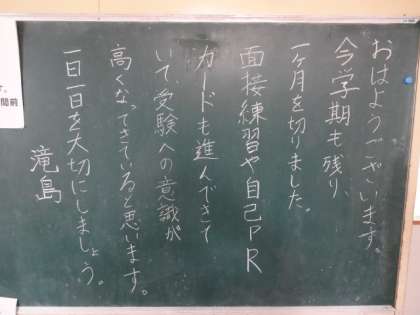 おはようございます。
今学期も残り、
一ヶ月を切りました。
面接練習や自己PR
カードも進んできて
いて、受験への意識が
高くなってきていると思います。
一日一日を大切にしましょう。
滝島
す。
間前